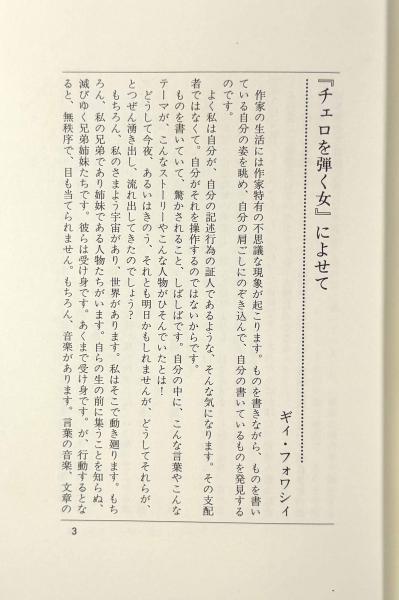 『チェロを弾く女』によせて
ギィ・フォワシイ
作家の生活には作家特有の不思議な現象が起こります。ものを書きながら、ものを書い
ている自分の姿を眺め、自分の肩ごしにのぞき込んで、自分の書いているものを発見する
のです。
よく私は自分が、自分の記述行為の証人であるような、そんな気になります。その支配
者ではなくて。自分がそれを操作するのではないからです。
ものを書いていて、驚かされること、しばしばです。自分の中に、こんな言葉やこんな
テーマが、こんなストーリーやこんな人物がひそんでいたとは！
どうして今夜、あるいはきのう、それとも明日かもしれませんが、どうしてそれらが、
とつぜん湧き出し、流れ出してきたのでしょう？
もちろん、私のさまよう宇宙があり、世界があります。私はそこで動き廻ります。もち
ろん、私の兄弟であり姉妹である人物たちがいます。自らの生の前に集うことを知らぬ、
滅びゆく兄弟姉妹たちです。彼らは受け身です。あくまで受け身です。が、行動するとな
ると、無秩序で、目も当てられません。もちろん、音楽があります。言葉の音楽、文章の
3